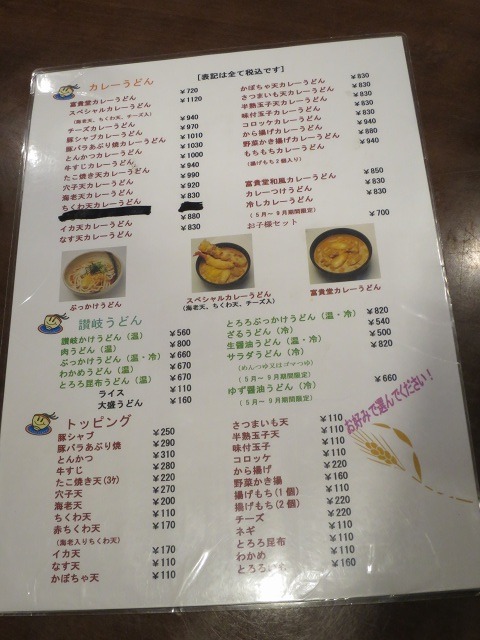 [表記は全て税込です]
カレーうどん
富貴堂カレーうどん ¥720
スペシャルカレーうどん ¥1120
(海老天、ちくわ天、チーズ入)
チーズカレーうどん ¥940
豚シャブカレーうどん ¥970
豚バラあぶり焼カレーうどん ¥1010
とんかつカレーうどん ¥1030
牛すじカレーうどん ¥1000
たこ焼き天カレーうどん ¥940
穴子天カレーうどん ¥990
海老天カレーうどん ¥920
ちくわ天カレーうどん ¥830
イカ天カレーうどん ¥880
なす天カレーうどん ¥830
かぼちゃ天カレーうどん ¥830
さつまいも天カレーうどん ¥830
半熟玉子天カレーうどん ¥830
味付玉子カレーうどん ¥830
コロッケカレーうどん ¥830
から揚げカレーうどん ¥940
野菜かき揚げカレーうどん ¥880
もちもちカレーうどん ¥940
(揚げもち2個入り)
富貴堂和風カレーうどん ¥850
カレーつけうどん ¥830
冷しカレーうどん ¥830
(5月～9月期間限定)
お子様セット ¥700
ぶっかけうどん
スペシャルカレーうどん
(海老天、ちくわ天、チーズ入)
富貴堂カレーうどん
讃岐うどん
讃岐かけうどん(温) ¥560
肉うどん(温) ¥800
ぶっかけうどん(温・冷) ¥660
わかめうどん(温) ¥670
とろろ昆布うどん(温) ¥670
ライス ¥110
大盛うどん ¥160
とろろぶっかけうどん(温・冷) ¥820
ざるうどん(冷) ¥540
生醤油うどん(冷) ¥500
サラダうどん(冷) ¥820
(めんつゆ又はゴマつゆ)
(5月～9月期間限定)
ゆず醤油うどん(冷) ¥660
(5月～9月期間限定)
お好みで選んでください!
トッピング
豚シャブ ¥250
豚バラあぶり焼 ¥290
とんかつ ¥310
牛すじ ¥280
たこ焼き天(3ケ) ¥220
穴子天 ¥270
海老天 ¥200
ちくわ天 ¥110
赤ちくわ天 ¥170
(海老入りちくわ天)
イカ天 ¥170
なす天 ¥110
かぼちゃ天 ¥110
さつまいも天 ¥110
半熟玉子天 ¥110
味付玉子 ¥110
コロッケ ¥110
から揚げ ¥220
野菜かき揚 ¥160
揚げもち(1個) ¥110
揚げもち(2個) ¥220
チーズ ¥220
ネギ ¥110
とろろ昆布 ¥110
わかめ ¥110
¥160